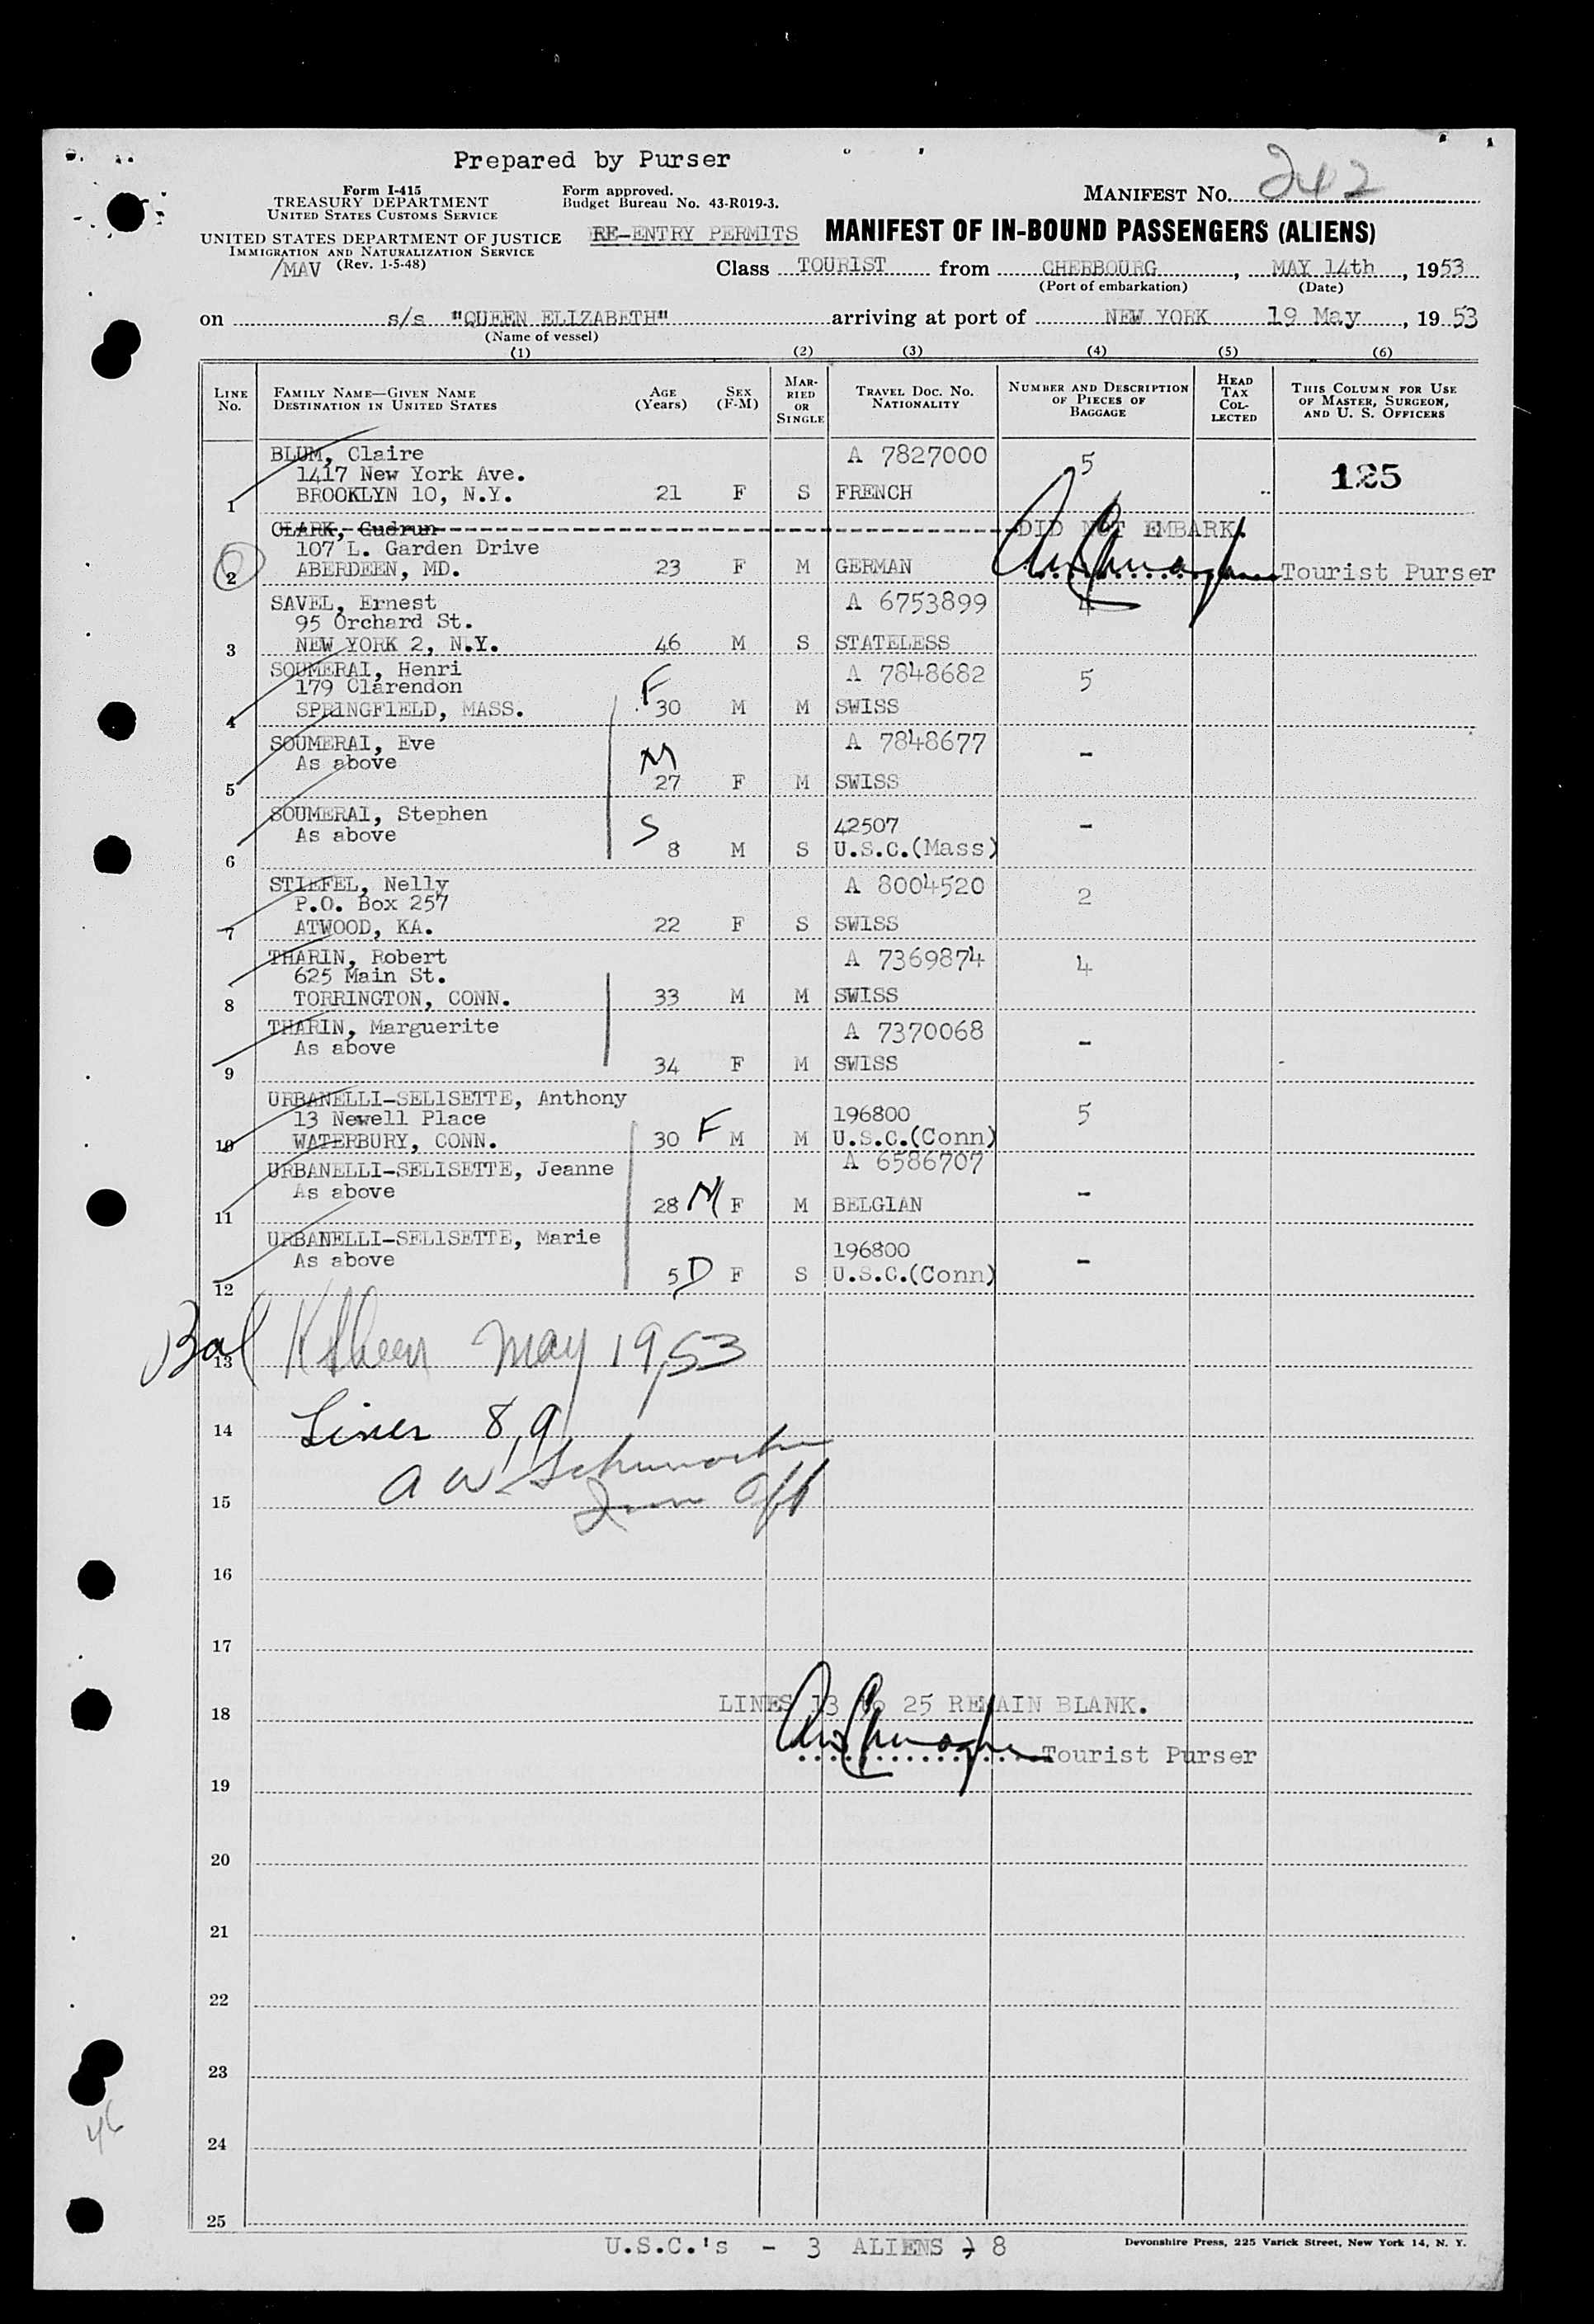 Prepared by Purser
Form I-415
TREASURY DEPARTMENT
UNITED STATES CUSTOMS SERVICE
UNITED STATES DEPARTMENT OF JUSTICE
IMMIGRATION AND NATURALIZATION SERVICE
/MAV (Rev. 1-5-48)
Form approved.
Budget Bureau No. 43-R019-3.
RE-ENTRY PERMITS
MANIFEST NO. 242
MANIFEST OF IN-BOUND PASSENGERS (ALIENS)
Class TOURIST from CHERBOURG, MAY 14th, 1953
(Port of embarkation) (Date)
on s/s "QUEEN ELIZABETH" arriving at port of NEW YORK 19 May, 1953
(Name of vessel)
(1) (2) (3) (4) (5) (6)
LINE NO.
FAMILY NAME—GIVEN NAME
DESTINATION IN UNITED STATES
AGE (Years)
SEX (F-M)
MARRIED OR SINGLE
TRAVEL DOC. NO.
NATIONALITY
NUMBER AND DESCRIPTION OF PIECES OF BAGGAGE
HEAD TAX COLLECTED
THIS COLUMN FOR USE OF MASTER, SURGEON, AND U. S. OFFICERS
BLUM, Claire A 7827000 5 125
1417 New York Ave.
1 BROOKLYN 10, N.Y. 21 F S FRENCH
CLARK, Gudrun DID NOT EMBARK.
107 L. Garden Drive
2 ABERDEEN, MD. 23 F M GERMAN Tourist Purser
SAVEL, Ernest A 6753899 4
95 Orchard St.
3 NEW YORK 2, N.Y. 46 M S STATELESS
SOUMERAI, Henri A 7848682 5
179 Clarendon F
4 SPRINGFIELD, MASS. 30 M M SWISS
SOUMERAI, Eve A 7848677 -
As above M
5 27 F M SWISS
SOUMERAI, Stephen 42507 -
As above S
6 8 M S U.S.C.(Mass)
STIEFEL, Nelly A 8004520 2
P.O. Box 257
7 ATWOOD, KA. 22 F S SWISS
THARIN, Robert A 7369874 4
625 Main St.
8 TORRINGTON, CONN. 33 M M SWISS
THARIN, Marguerite A 7370068 -
As above
9 34 F M SWISS
URBANELLI-SELISETTE, Anthony
13 Newell Place 196800 5
10 WATERBURY, CONN. 30 F M M U.S.C.(Conn)
URBANELLI-SELISETTE, Jeanne A 6586707
As above -
11 28 M F M BELGIAN
URBANELLI-SELISETTE, Marie 196800
As above -
12 5 D F S U.S.C.(Conn)
Bal May 19, 53
13
Lines 8, 9
14
A W
15
16
17
LINES 13 to 25 REMAIN BLANK.
18
Tourist Purser
19
20
21
22
23
46
24
25
U.S.C.'s - 3 ALIENS 8
Devonshire Press, 225 Varick Street, New York 14, N. Y.